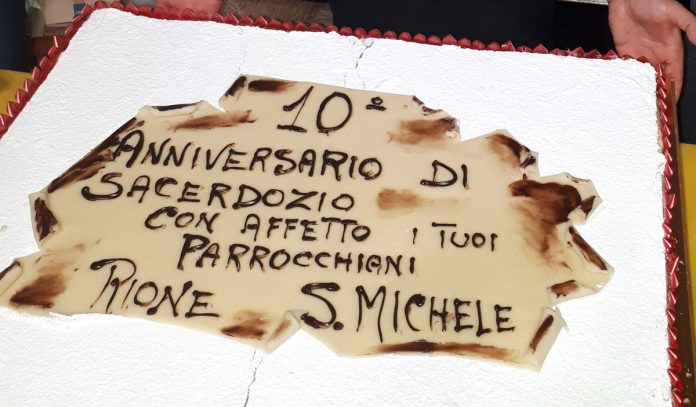 10º
ANNIVERSARIO DI
SACERDOZIO
CON AFFETTO I TUOI
PARROCCHIANI
RIONE S. MICHELE